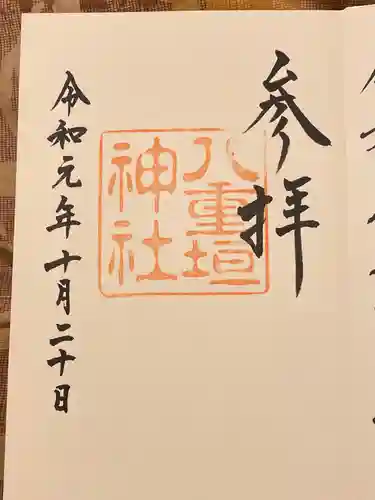 参拝
八重垣
神社
令和元年十月二十日